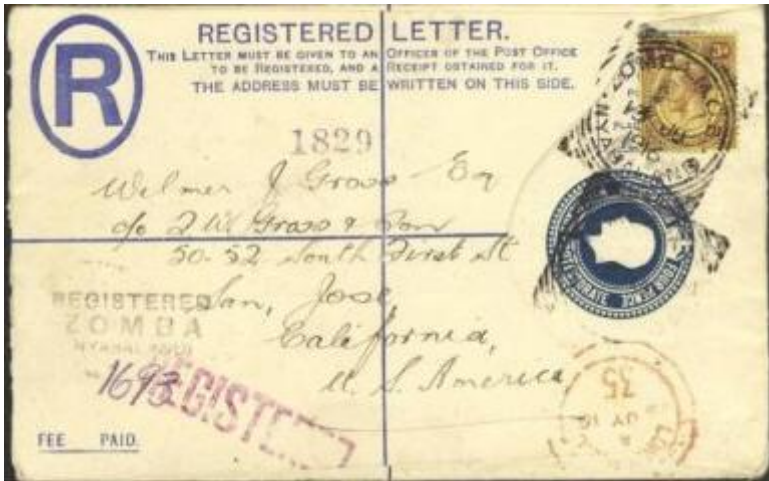 R
REGISTERED LETTER.
THIS LETTER MUST BE GIVEN TO AN OFFICER OF THE POST OFFICE
TO BE REGISTERED, AND A RECEIPT OBTAINED FOR IT.
THE ADDRESS MUST BE WRITTEN ON THIS SIDE.
1829
Wilmer J Gross Esq
c/o J W Gross & Son
50-52 South First St
San Jose,
California,
U. S. America
REGISTERED
ZOMBA
1693
REGISTERED
FEE PAID.
35